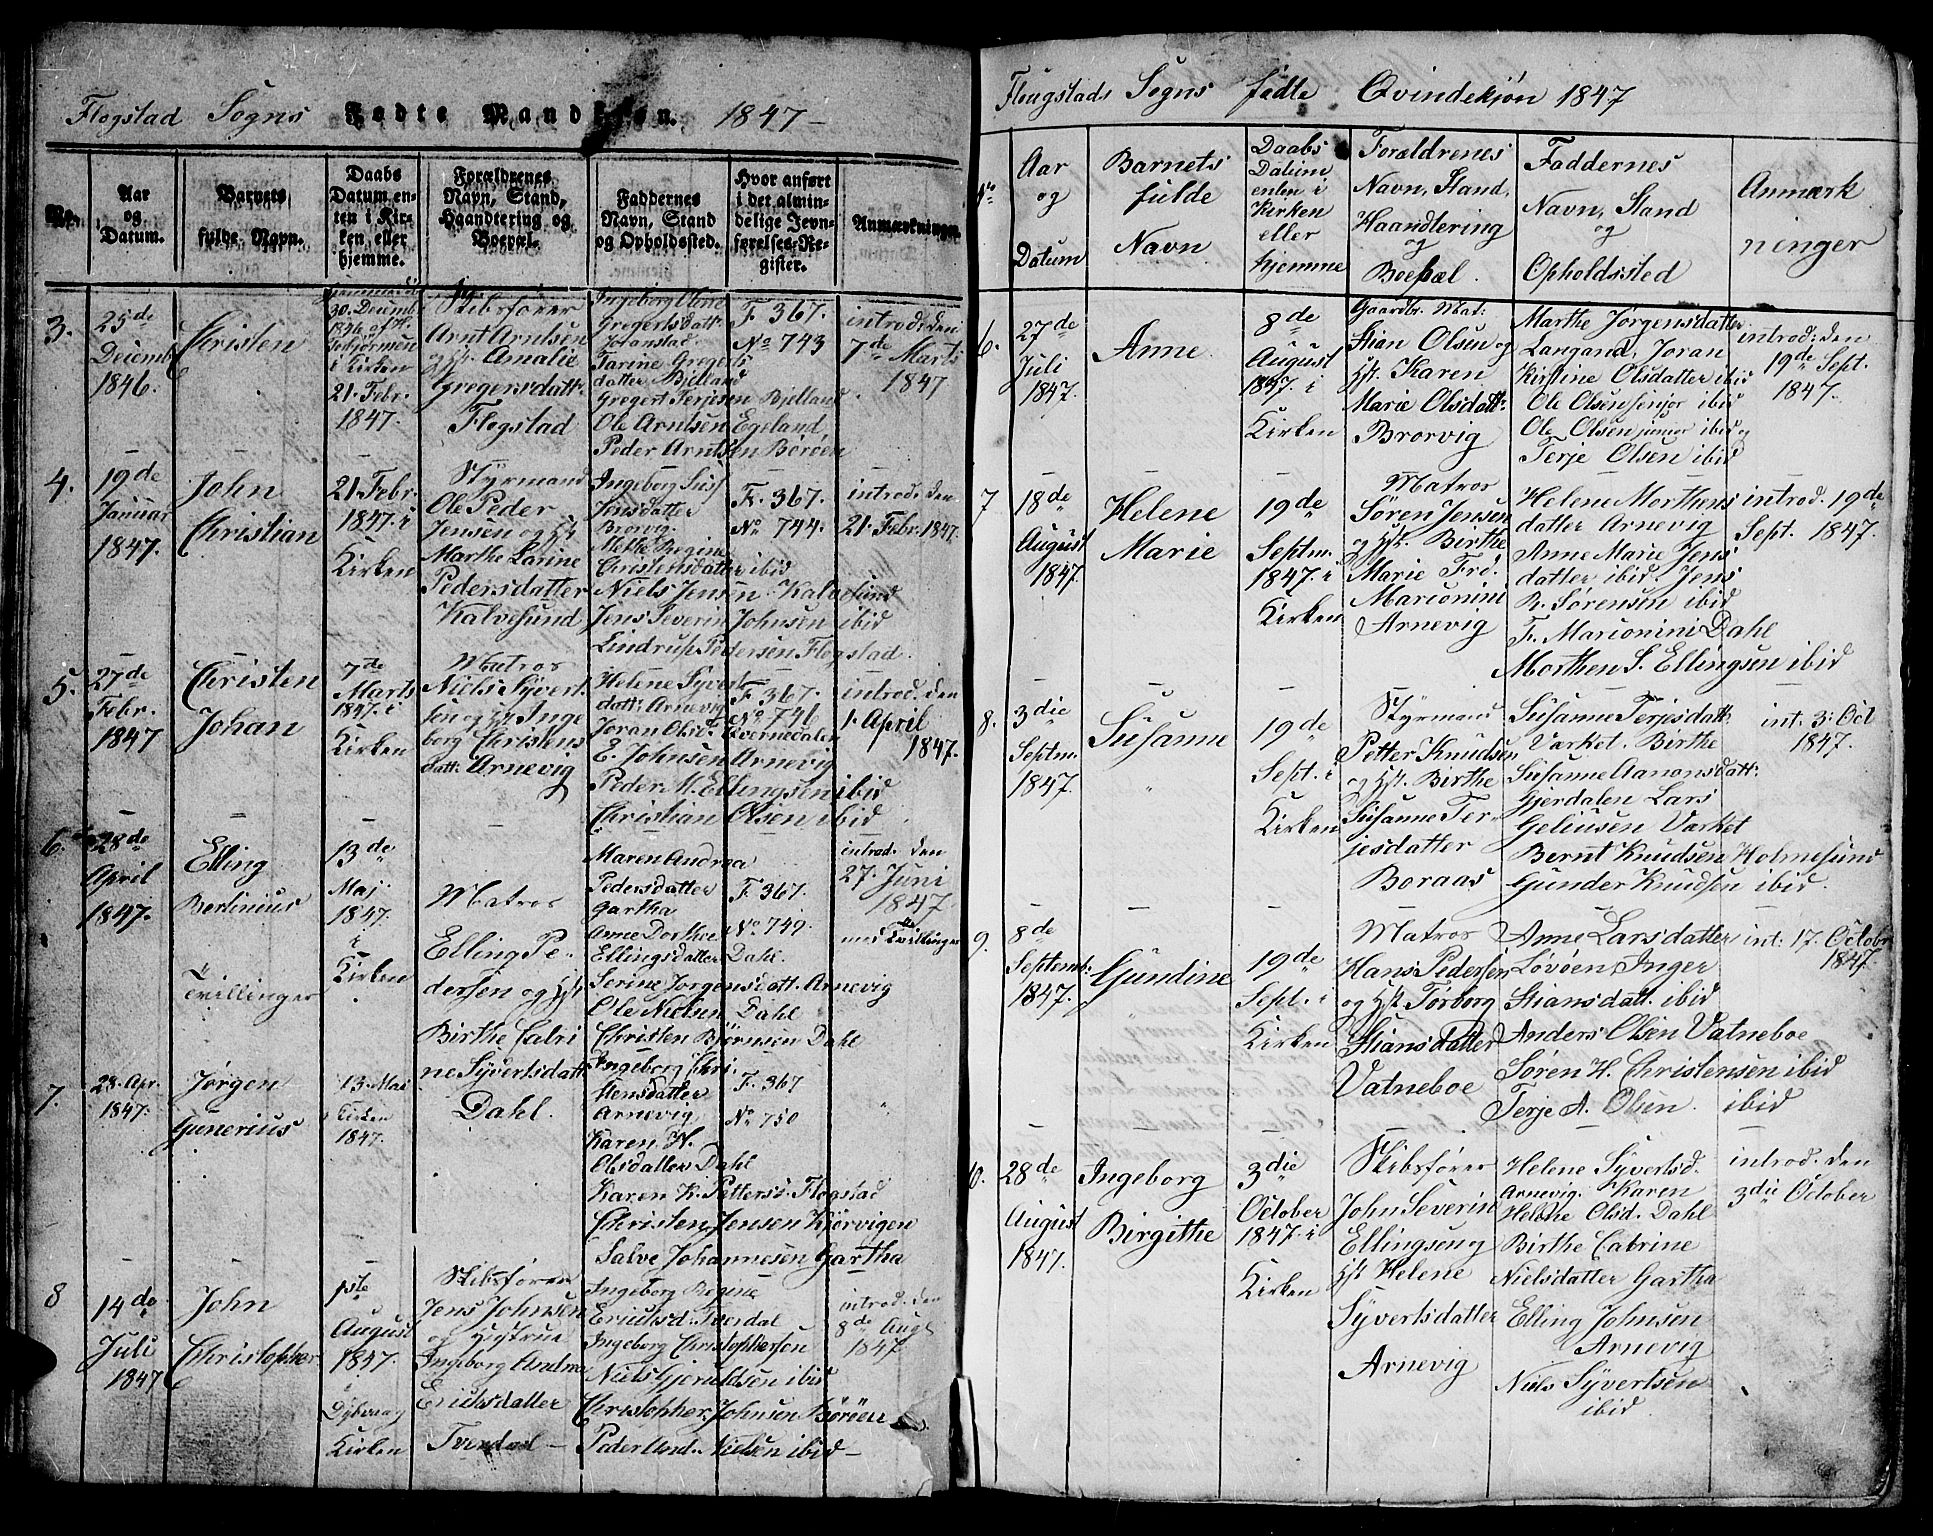 Flogstad Sogns Fødte Mandkjøn. 1847 –
No.
Aar og Datum.
Barnets fulde Navn.
Daabs Datum enten i Kirken eller hjemme.
Forældrenes Navn, Stand, Haandtering og Boepæl.
Faddernes Navn, Stand og Opholdssted.
Hvor anført i det almindelige Jevnførelses-Register.
Anmærkninger.
3.
25de
Decemb
1846.
Christen
30. Decemb
1846 af H.
i Kirken
21. Febr.
1847.
Skibsfører
Arnt Arntsen
og Hst. Amalie
Gregersdatt.
Flogstad
Ingeborg Oline
Gregertsdatt.
Joranstad
Tarine Gregerts
datter Bjelland
Gregert Terjesen Bjelland
Ole Arntsen Egeland
Peder Arntsen Børøen
F. 367.
No 743
introd. den
7de Marts
1847
4.
19de
Januar
1847.
John
Christian
21. Febr.
1847. i
Kirken
Styrmand
Ole Peder
Jensen og Hst
Marthe Larine
Pedersdatter
Kalvesund
Ingeborg Sus
Jensdatter
Brorvig.
Methe Regine
Christensdatter ibid
Niels Jensen Kalvesund
Jens Severin Johnsen ibid
Lindrup Pedersen Flogstad.
F. 367.
No 744.
introd. den
21. Febr. 1847.
5.
27de
Febr.
1847
Christen
Johan
7de
Marts
1847. i
Kirken
Matros
Niels Syvert
sen og Hst. Inge
borg Christens
datt. Arnevig
Helene Syverts
datt. Arnevig
Joran Olsd. Qvernedalen
E. Johnsen Arnevig
Peder M. Ellingsen ibid
Christian Olsen ibid
F. 367.
No 746
introd. den
1. April
1847.
6.
28de
April
1847.
Elling
Bertinius
Tvillinger
13de
Maj
1847.
i
Kirken
Matros
Elling Pe
dersen og Hst
Birthe Catri
ne Syvertsdatt.
Dahl.
Maren Andrea
Pedersdatter
Gartha
Anne Dorthea
Ellingsdatter Dahl.
Serine Jørgensdatt. Arnevig
Ole Nielsen Dahl
Christen Bjørnsen Dahl
F. 367.
No 749.
introd. den
27. Juni
1847
med Tvillinger
7.
28. Apr.
1847.
Jørgen
Gunerius
13. Mai
Kirken
1847.
Ingeborg Chri
stensdatter
Arnevig.
Karen H.
Olsdatter Dahl
Karen K. Petters. Flogstad
Christen Jensen Kjørvigen
Salve Johannesen Gartha
F. 367
No 750
8
14de
Juli
1847
John
Christopher
1ste
August
1847.
i
Dybvaag
Kirken
Skibsfører
Jens Johnsen
og Hustrue
Ingeborg Andrea
Erichsdatter
Tverdal –
Ingeborg Regine
Erichsd. Tverdal
Ingeborg Christophersen
Niels Gjeruldsen ibid
Christopher Johnsen Børøen
Peder And. Nielsen ibid –
introd. den
8de Aug.
1847
Flougstads Sogns fødte Qvindekjøn 1847
Aar og Datum
Barnets fulde Navn
Daabs Datum enten i Kirken eller hjemme
Forældrenes Navn, Stand, Haandtering og Boepæl.
Faddernes Navn, Stand og Opholdssted
Anmærkninger
6.
27de
Juli
1847.
Anne
8de
August
1847. i
Kirken
Gaardbr. Mat:
Stian Olsen og
Hst. Karen
Marie Olsdatt.
Brorvig
Marthe Jørgensdatter
Langand, Joran
Kirstine Olsdatter ibid
Ole Olsen senior ibid
Ole Olsen junior ibid og
Terje Olsen ibid
introd: den
19de Sept.
1847.
7
18de
August
1847.
Helene
Marie
19de
Septm.
1847. i
Kirken
Matros
Søren Jensen
og Hst. Birthe
Marie Frd.
Marionini
Arnevig
Helene Morthens
datter Arnevig
Anne Marie Jens
datter ibid. Jens
R. Sørensen ibid
Fr. Marionini Dahl
Morthen S. Ellingsen ibid
introd. 19de
Sept. 1847.
8.
3die
Septm.
1847.
Susanne
19de
Sept. i
Kirken
Styrmand
Petter Knudsen
og Hst. Birthe
Susanne Ter
jesdatter
Boraas
Susanne Terjesdatt.
Værket. Birthe
Susanne Aanonsdatt:
Gjerdalen Lars
Geliusen Værket
Bernt Knudsen Holmesund
Gunder Knudsen ibid.
int. 3. Oct
1847.
9.
8de
Septemb.
1847.
Gundine
19de
Sept. i
Kirken
Matros
Hans Pedersen
og Hst. Torborg
Stiansdatter
Vatneboe
Anne Larsdatter
Løvøen, Inger
Stiansdatt. ibid
Anders Olsen Vatneboe
Søren H. Christensen ibid
Terje A. Olsen. ibid
int: 17. Octobr
1847.
10.
28de
August
1847.
Ingeborg
Birgithe
3die
October
1847. i
Kirken
Skibsfører
John Severin
Ellingsen og
Hst Helene
Syvertsdatter
Arnevig
Helene Syvertsd.
Arnevig. Karen
Helene Olsd. Dahl
Birthe Catrine
Nielsdatter Gartha
Elling Johnsen
Arnevig
Niels Syvertsen
ibid
introd. den
3die October